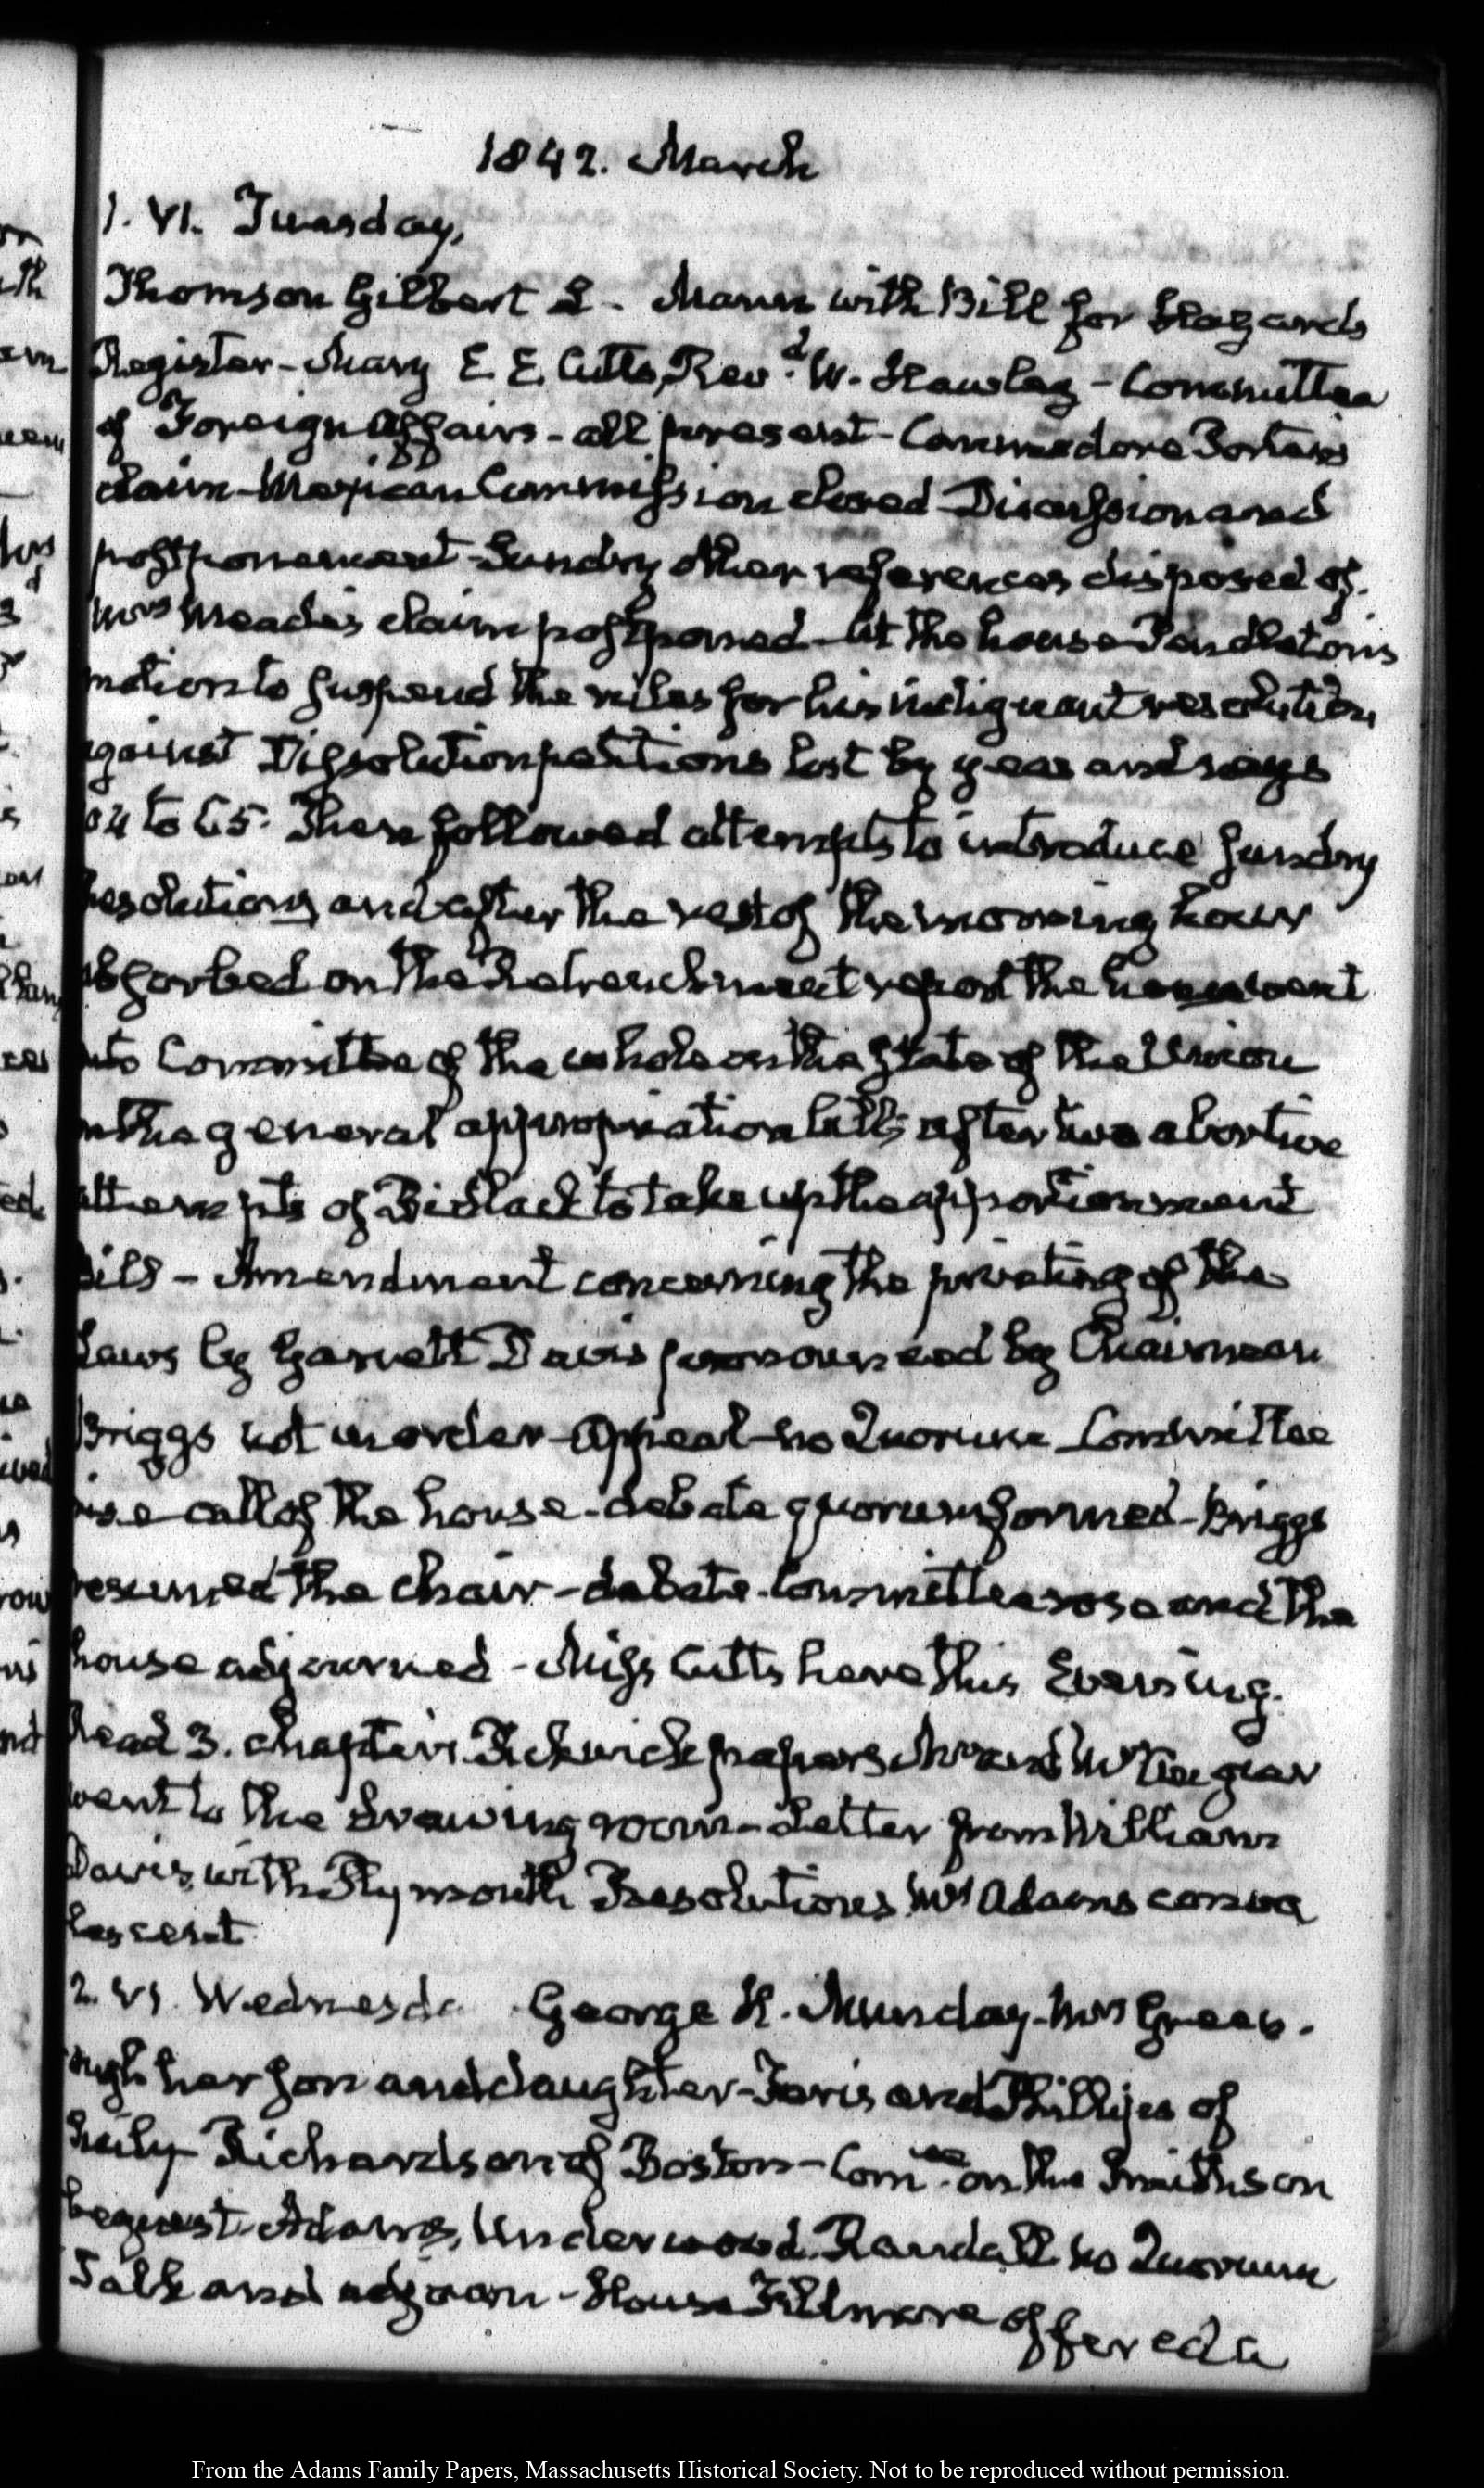 1842. March
1. VI. Tuesday,
Thomson Gilbert L. Mann with Bill for Hazards
Register - Mary E. E. Cutts, Revd. W. Hawley - Committee
of Foreign Affairs - all present - Commodore Porter's
claim - Mexican Commission closed - Discussion and
postponement - Sundry other references disposed of.
Mrs Meade's claim postponed - At the house Pendleton's
motion to suspend the rules for his indignant resolution
against Dissolution petitions lost by yeas and nays
to 65. There followed attempts to introduce sundry
resolutions and after the rest of the morning hour
absorbed on the Retrenchment report the house went
into Committee of the whole on the State of the Union
on the general appropriation bill, after two abortive
attempts of Bidlack to take up the apportionment
Bill - Amendment concerning the printing of the
Laws by Garrett Davis pronounced by Chairman
Briggs not in order - Appeal - no Quorum - Committee
rise - call of the house - debate quorum formed - Briggs
resumed the chair - debate - Committee rose and the
house adjourned - Miss Cutts here this Evening.
Read 3. chapters Pickwick papers Mr and Mrs
went to the drawing room - Letter from William
Davis, with Plymouth Resolutions Mrs Adams conva
lescent
2. VI. Wednesda George H. Munday - Mrs Green.
ough her son and daughter - and Phillips of
Richardson of Boston - Comee. on the Smithson
bequest - Adams, Underwood. Randall no Quorum
Talk and adjourn - House Fillmore offered a
From the Adams Family Papers, Massachusetts Historical Society. Not to be reproduced without permission.